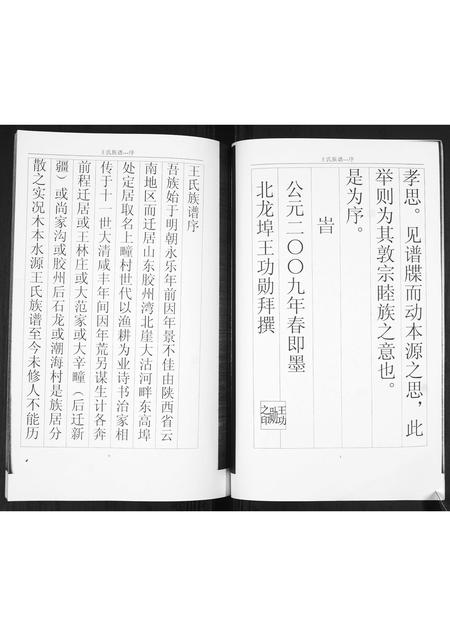 王氏族谱—序
孝思。见谱牒而动本源之思，此
举则为其敦宗睦族之意也。
是为序。
旹
公元二〇〇九年春即墨
北龙埠王功勋拜撰
王功
勋
之印
王氏族谱—序
王氏族谱序
吾族始于明朝永乐年前因年景不佳由陕西省云
南地区而迁居山东胶州湾北崖大沽河畔东高埠
处定居取名上疃村世代以渔耕为业诗书治家相
传于十一世大清咸丰年间因年荒另谋生计各奔
前程迁居或王林庄或大范家或大辛疃（后迁新
疆）或尚家沟或胶州后石龙或潮海村是族居分
散之实况木本水源王氏族谱至今未修人不能历